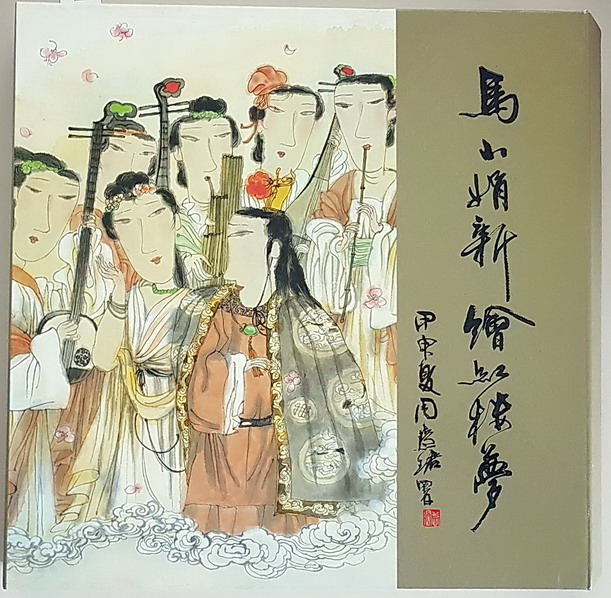 馬小娟新繪红楼夢
甲申夏周慧珺署